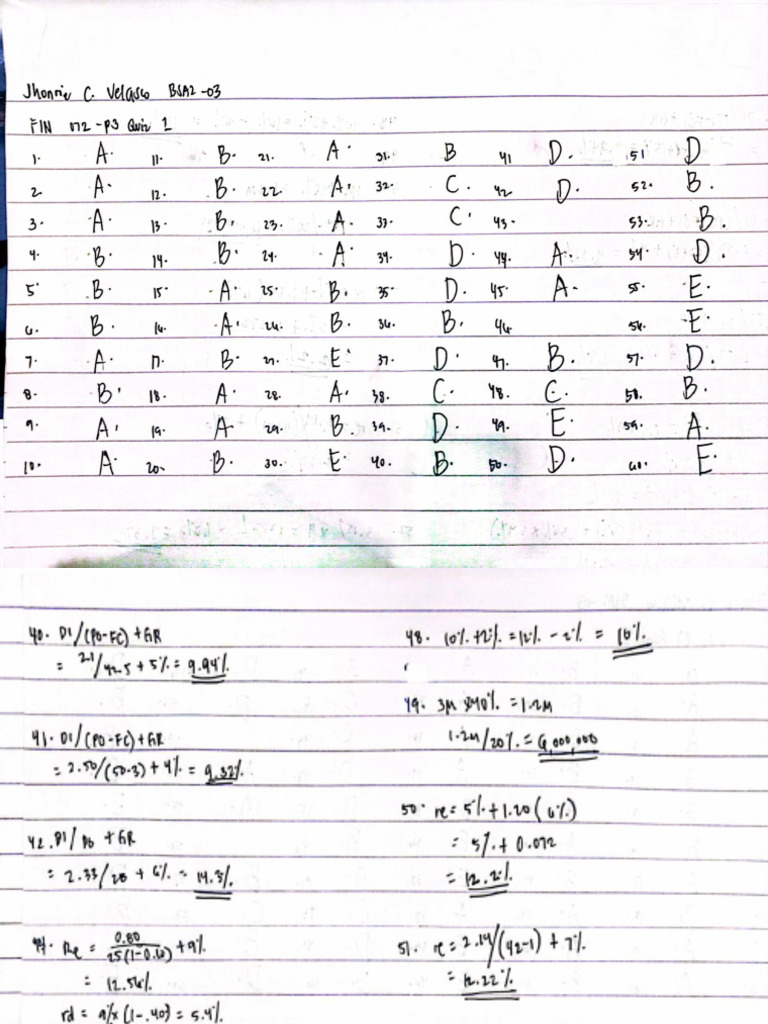 Jhonrie C. Velasco BSA2-03
FIN 072 -P3 Quiz 1
1. A. 11. B. 21. A. 31. B 41 D. 51 D
2 A. 12. B. 22. A. 32. C. 42 D. 52. B.
3. A. 13. B. 23. A. 33. C. 43. 53. B.
4. B. 14. B. 24. A. 34. D. 44. A. 54. D.
5. B. 15. A. 25. B. 35 D. 45 A. 55. E.
6. B. 16. A. 26. B. 36. B. 46 56. E.
7. A 17. B. 27. E. 37. D. 47. B. 57. D.
8. B. 18. A. 28. A. 38. C. 48. C. 58. B.
9. A. 19. A. 29. B 39. D. 49. E. 59. A.
10. A. 20. B. 30. E 40. B. 50. D. 60. E.
40. D1/(P0-FC) + GR
= 2.1/42.5 + 5% = 9.94%
41. D1/(P0-FC) + GR
= 2.50/(50-3) + 4% = 9.32%
42. D1/P0 + GR
= 2.33/28 + 6% = 14.3%
44. Re = 0.80/25(1-0.10) + 9%
= 12.56%
rd = 9% x (1-.40) = 5.4%
48. 10% +2% = 12% - 2% = 10%
49. 3M x40% = 1.2M
1.2M/20% = 6,000,000
50. re = 5% + 1.20 (6%)
= 5% + 0.072
= 12.2%
51. re = 2.14/(42-1) + 7%
= 12.22%